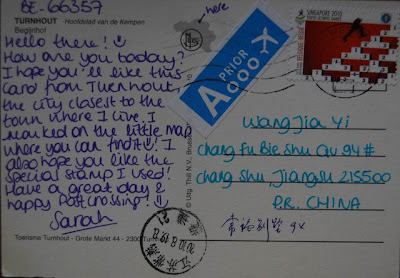 BE-66357
here
TURNHOUT Hoofdstad van de Kempen
Begijnhof
Hello there! ☺
How are you today?
I hope you'll like this
card from Turnhout,
the city closest to the
town where I live. I
marked on the little map
where you can find it ☺! I
also hope you like the
special stamp I used!
Have a great day &
happy Postcrossing! ☺
Sarah
Toerisme Turnhout - Grote Markt 44 - 2300 Turnhout
© Uitg. Thill N.V. Brussel
A PRIOR
SINGAPORE 2010
YOUTH OLYMPIC GAMES
Wang Jia Yi
Chang Fu Bie Shu Qu 94#
Chang Shu, Jiangsu 215500
P.R. CHINA
江苏常熟